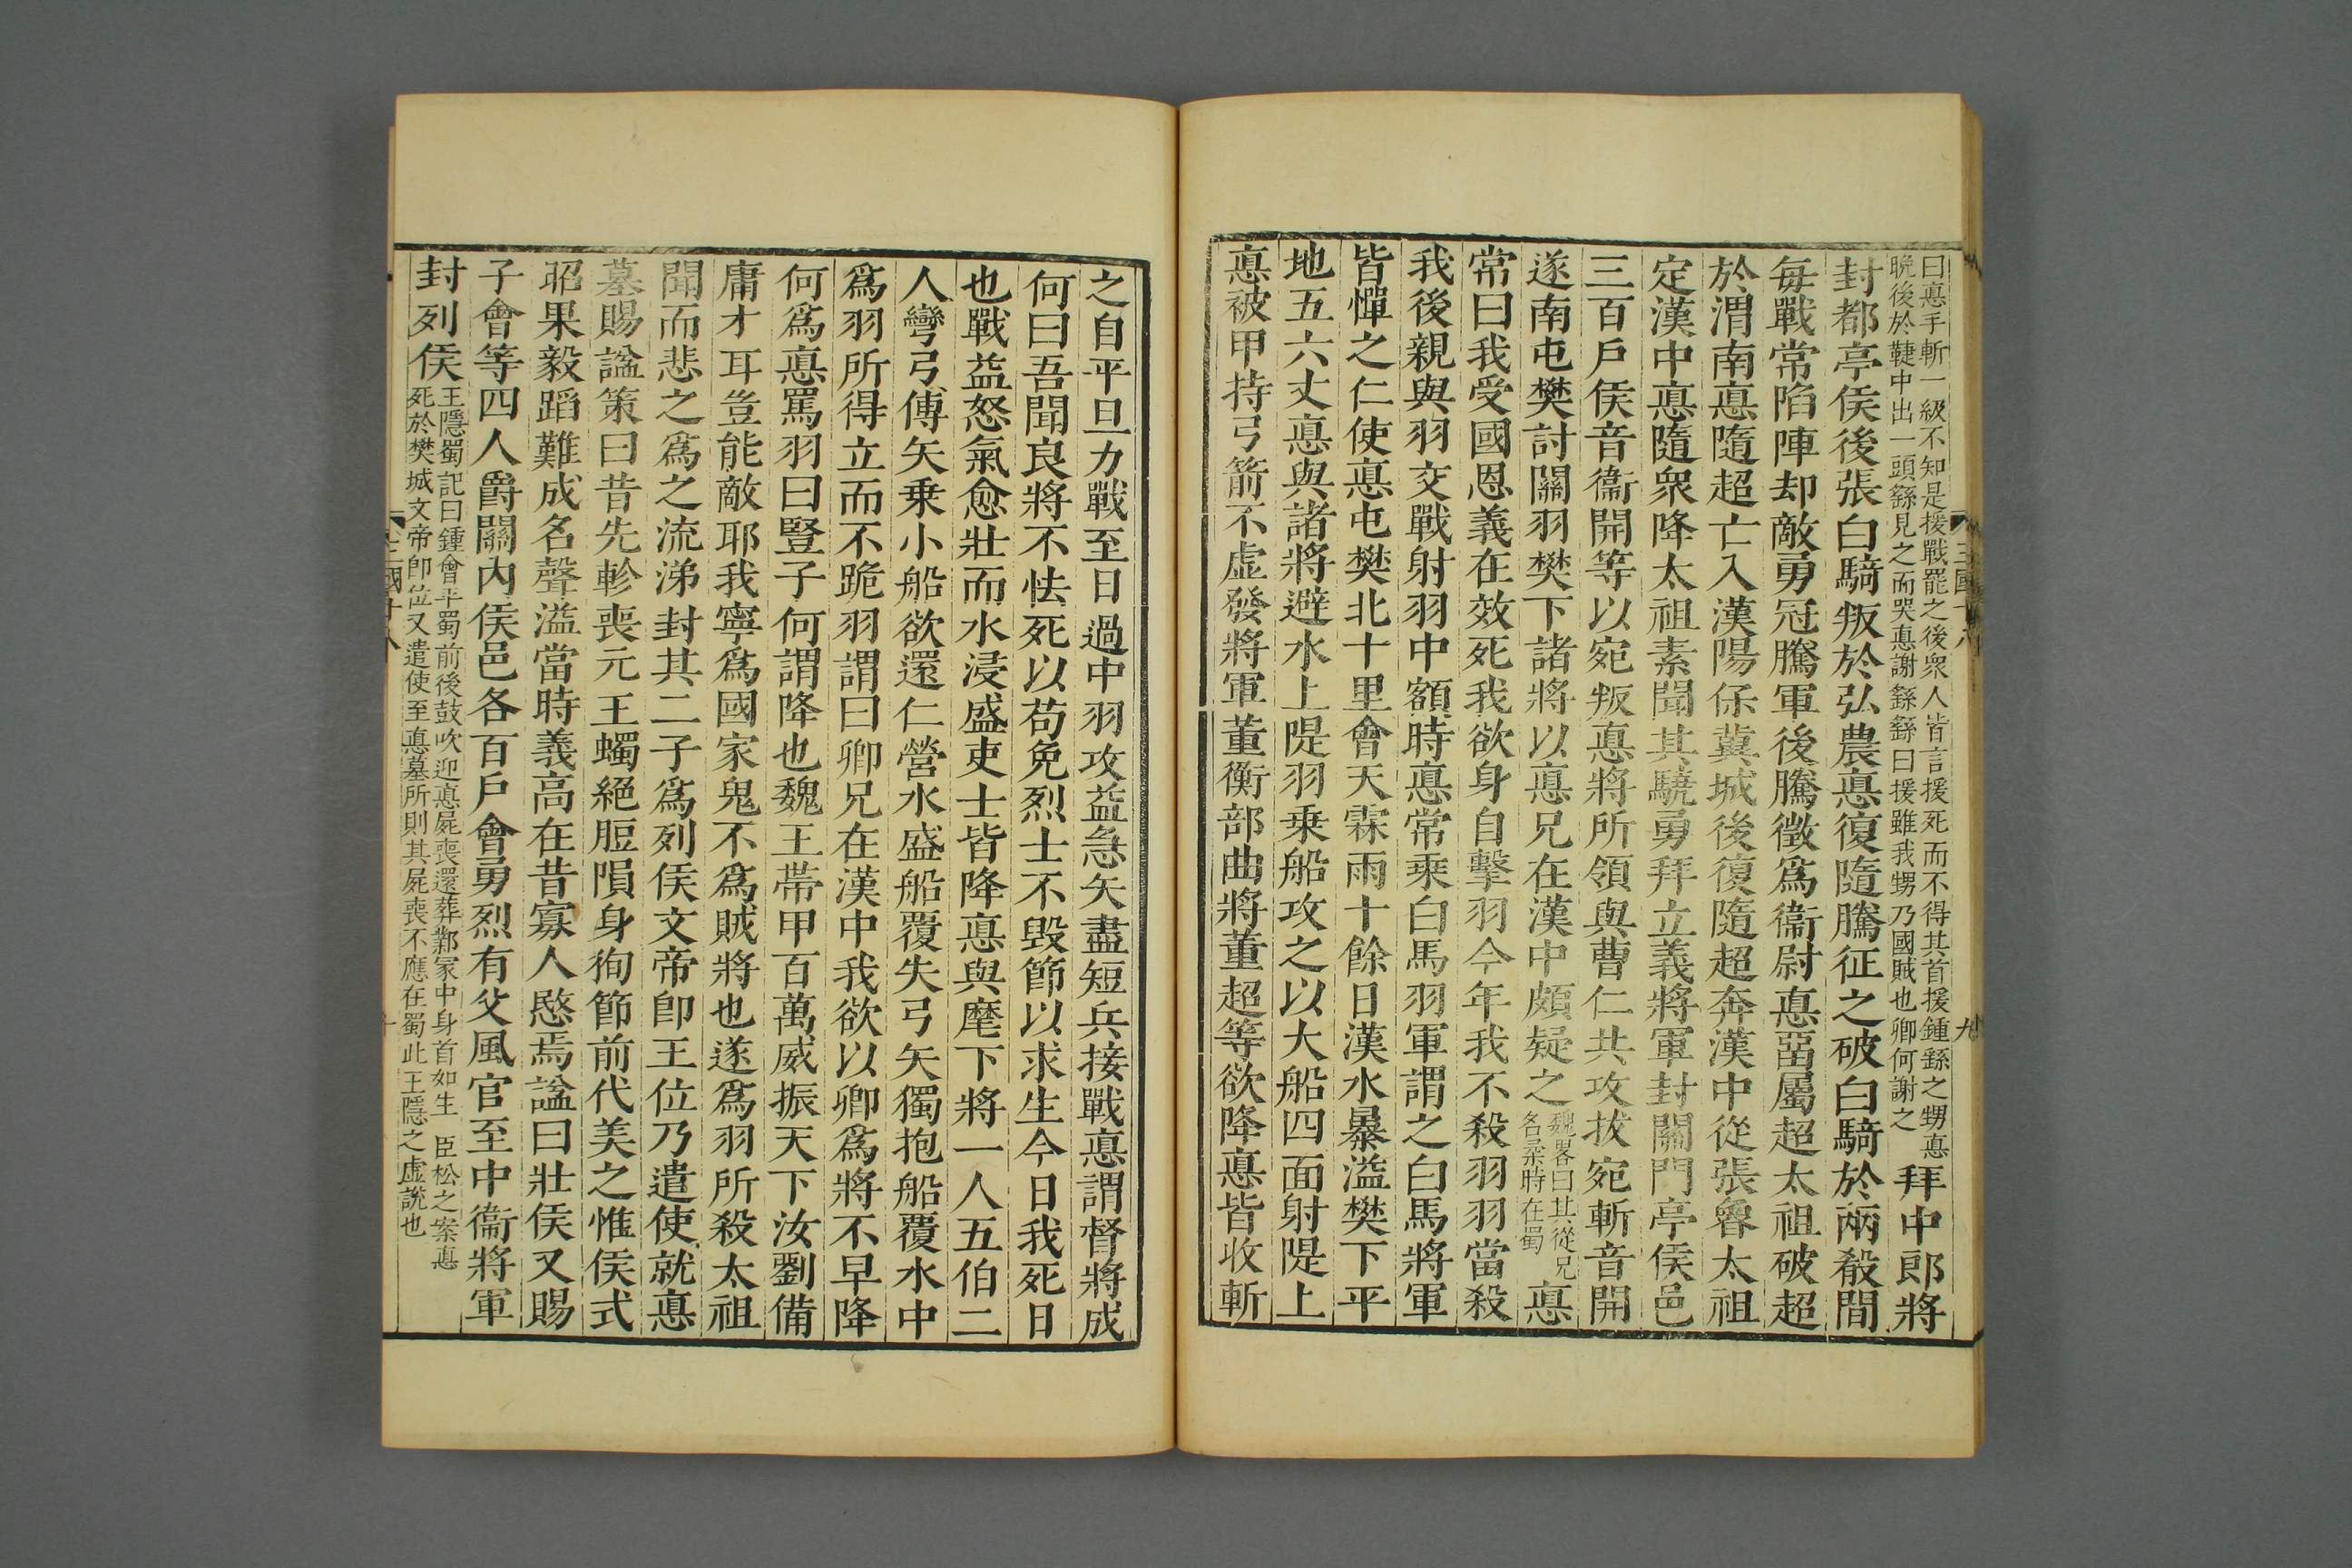 曰惪手斬一級不知是援戰罷之後衆人皆言援死而不得其首援鍾繇之甥惪
晩後於鞬中出一頭繇見之而哭惪謝繇繇曰援雖我甥乃國賊也卿何謝之
拜中郎將
封都亭侯後張白騎叛於弘農惪復隨騰征之破白騎於兩殽間
每戰常陷陣却敵勇冠騰軍後騰徵爲衞尉惪畱屬超太祖破超
於渭南惪隨超亡入漢陽保冀城後復隨超奔漢中從張魯太祖
定漢中惪隨衆降太祖素聞其驍勇拜立義將軍封關門亭侯邑
三百戶侯音衞開等以宛叛惪將所領與曹仁共攻拔宛斬音開
遂南屯樊討關羽樊下諸將以惪兄在漢中頗疑之
魏畧曰其從兄
名柔時在蜀
惪
常曰我受國恩義在效死我欲身自擊羽今年我不殺羽羽當殺
我後親與羽交戰射羽中額時惪常乘白馬羽軍謂之白馬將軍
皆憚之仁使惪屯樊北十里會天霖雨十餘日漢水暴溢樊下平
地五六丈惪與諸將避水上隄羽乘船攻之以大船四面射隄上
惪被甲持弓箭不虛發將軍董衡部曲將董超等欲降惪皆收斬
三國十八
九
之自平旦力戰至日過中羽攻益急矢盡短兵接戰惪謂督將成
何曰吾聞良將不怯死以苟免烈士不毀節以求生今日我死日
也戰益怒氣愈壯而水浸盛吏士皆降惪與麾下將一人五伯二
人彎弓傅矢乘小船欲還仁營水盛船覆失弓矢獨抱船覆水中
爲羽所得立而不跪羽謂曰卿兄在漢中我欲以卿爲將不早降
何爲惪罵羽曰豎子何謂降也魏王帶甲百萬威振天下汝劉備
庸才耳豈能敵耶我寧爲國家鬼不爲賊將也遂爲羽所殺太祖
聞而悲之爲之流涕封其二子爲列侯文帝卽王位乃遣使就惪
墓賜謚策曰昔先軫喪元王蠋絕脰隕身徇節前代美之惟侯式
昭果毅蹈難成名聲溢當時義高在昔寡人愍焉謚曰壯侯又賜
子會等四人爵關內侯邑各百戶會勇烈有父風官至中衞將軍
封列侯
王隱蜀記曰鍾會平蜀前後鼓吹迎惪屍喪還葬鄴冢中身首如生 臣松之案惪
死於樊城文帝卽位又遣使至惪墓所則其屍喪不應在蜀此王隱之虛說也